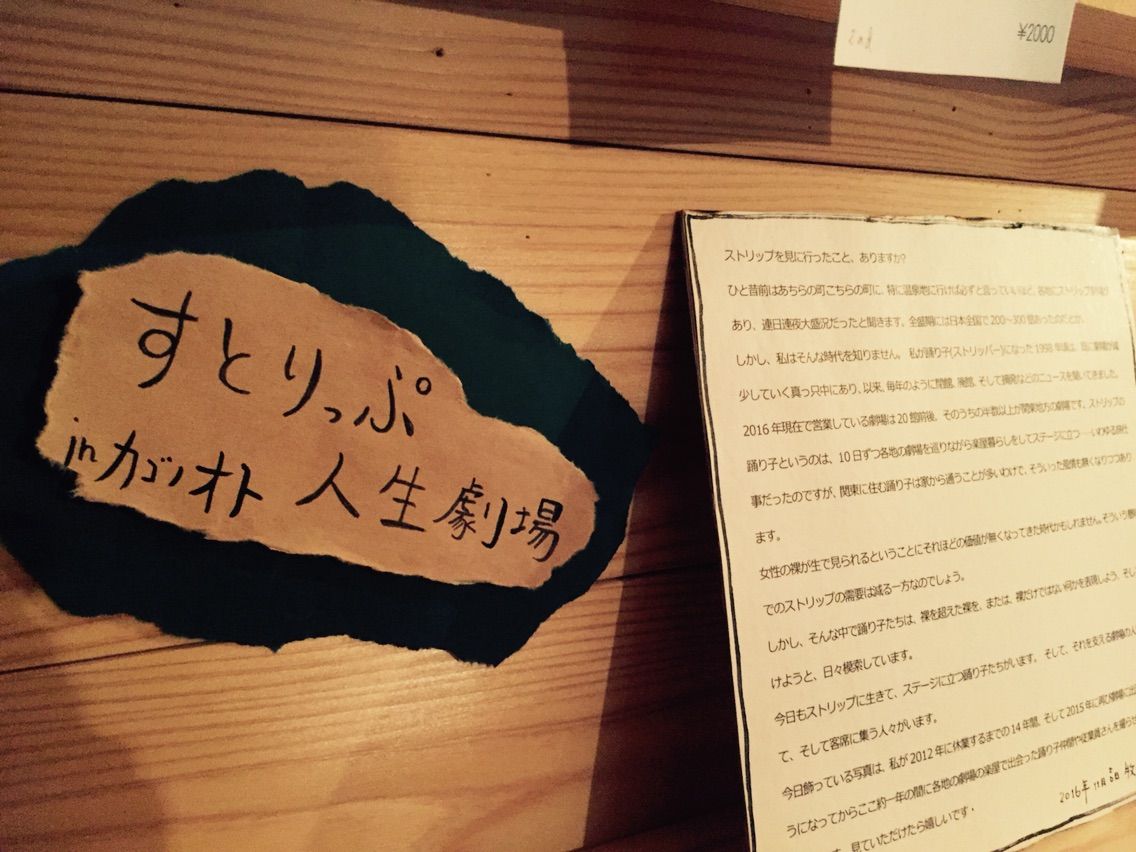 2nd
¥2000
すとりっぷ
inカゴノオト 人生劇場
ストリップを見に行ったこと、ありますか?
ひと昔前はあちらの町こちらの町に、特に温泉地に行けば必ずと言っていいほど、各地にストリップ劇場が
あり、連日連夜大盛況だったと聞きます。全盛期には日本全国で200～300館あったのだとか。
しかし、私はそんな時代を知りません。私が踊り子(ストリッパー)になった1998年頃は、既に劇場が減
少していく真っ只中にあり、以来、毎年のように閉館、廃館、そして摘発などのニュースを聞いてきました。
2016年現在で営業している劇場は20館前後。そのうちの半数以上が関東地方の劇場です。ストリップの
踊り子というのは、10日ずつ各地の劇場を巡りながら楽屋暮らしをしてステージに立つ……いわゆる旅仕
事だったのですが、関東に住む踊り子は家から通うことが多いわけで、そういった風情も無くなりつつあり
ます。
女性の裸が生で見られるということにそれほどの価値が無くなってきた時代かもしれません。そういう意
でのストリップの需要は減る一方なのでしょう。
しかし、そんな中で踊り子たちは、裸を超えた裸を、または、裸だけではない何かを表現しよう、そし
けようと、日々模索しています。
今日もストリップに生きて、ステージに立つ踊り子たちがいます。そして、それを支える劇場の人
て、そして客席に集う人々がいます。
今日飾っている写真は、私が2012年に休業するまでの14年間、そして2015年に再び劇場に出
うになってからここ約一年の間に各地の劇場の楽屋で出会った踊り子仲間や従業員さんを撮らせ
す。見ていただけたら嬉しいです・
2016年11月 日 牧